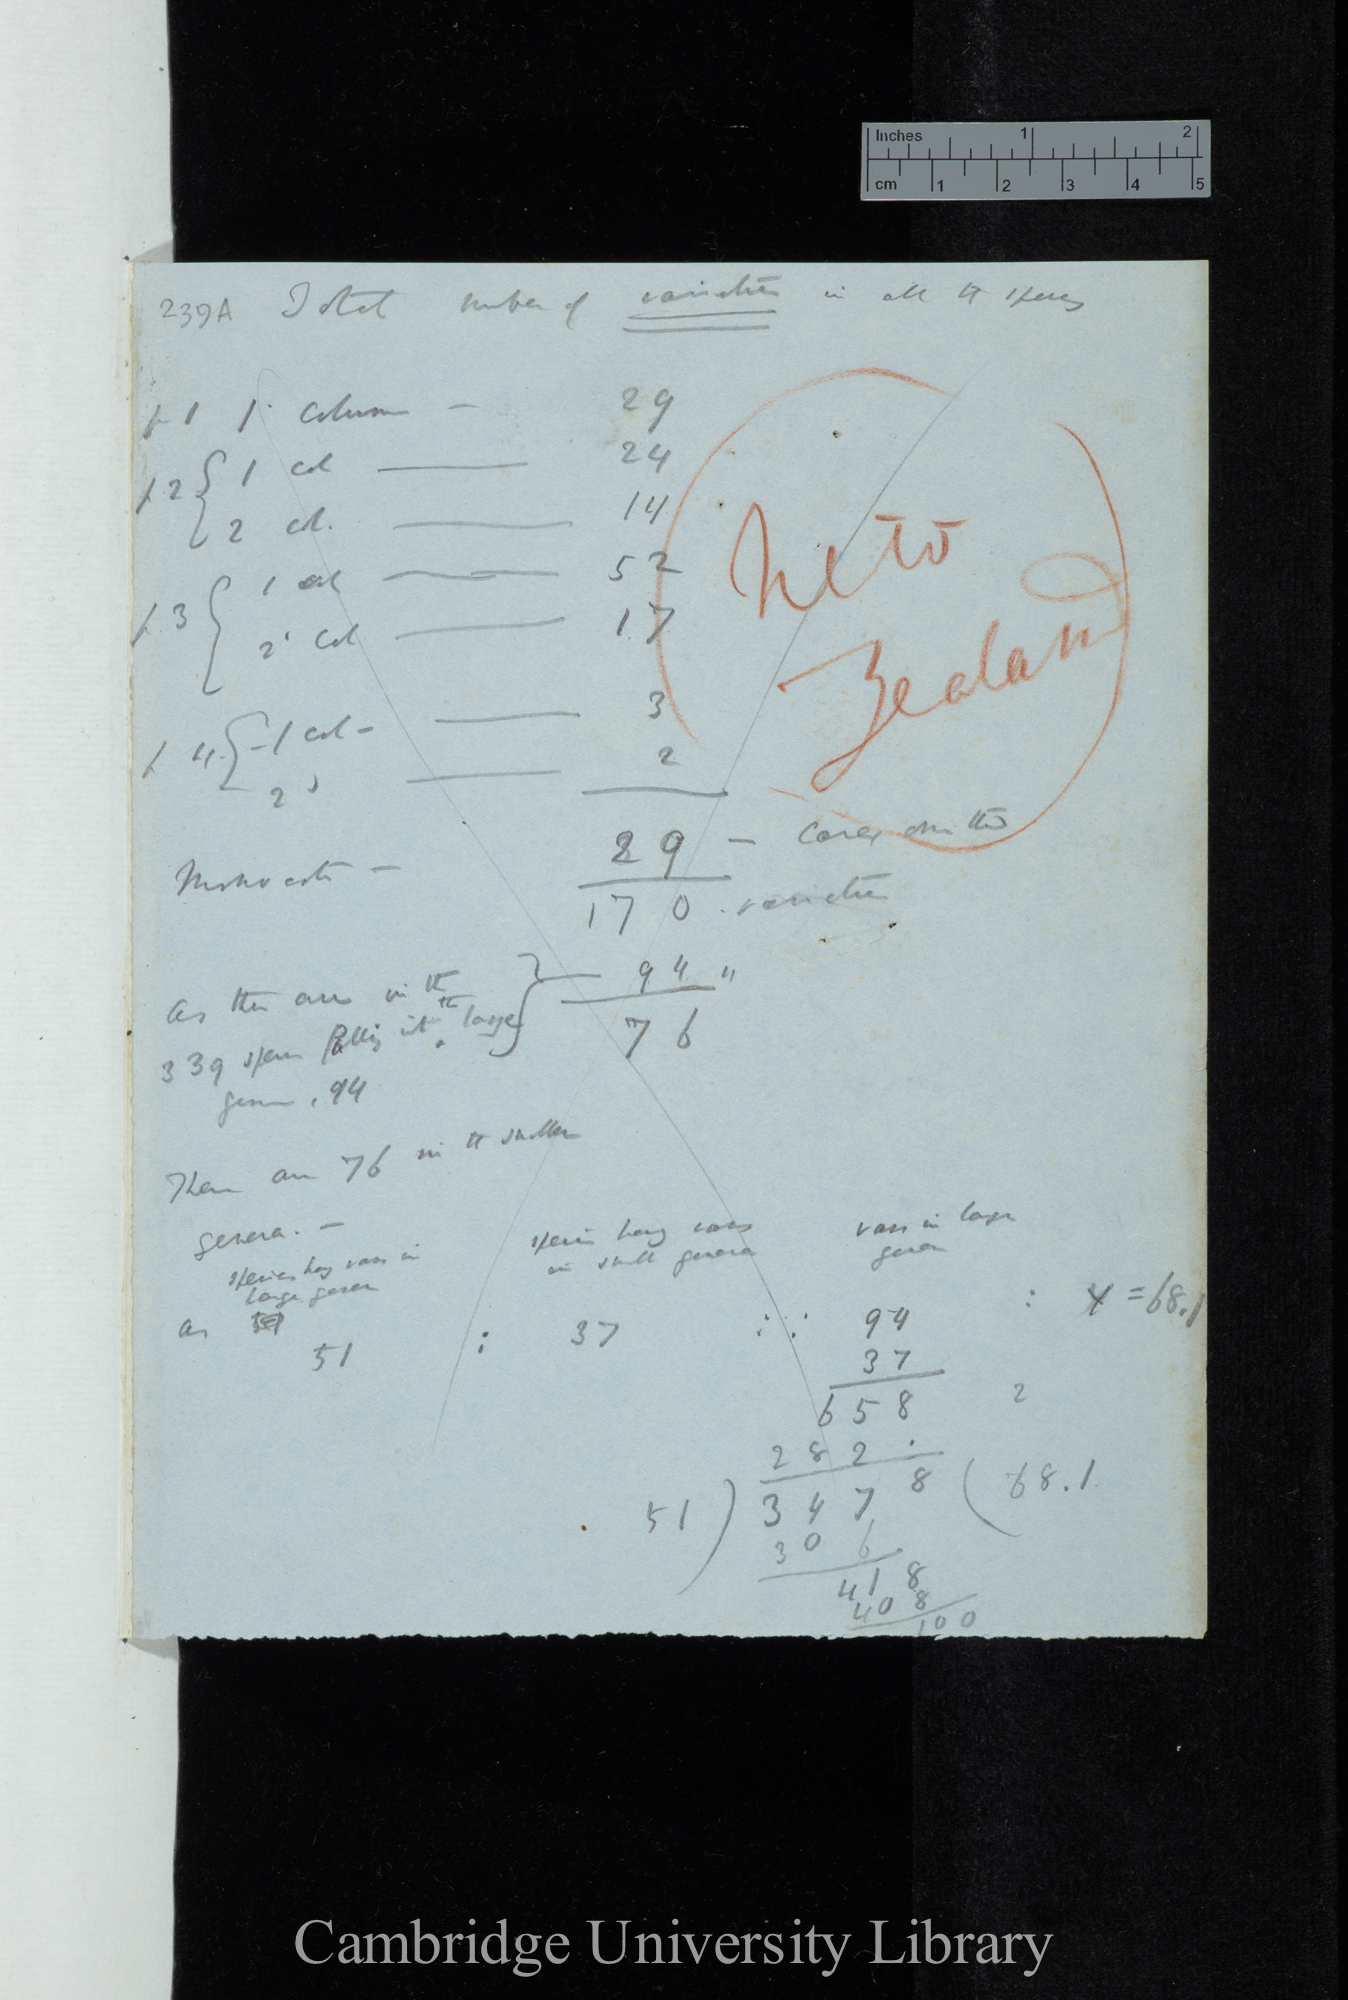 Inches 1 2
cm 1 2 3 4 5
239A Total number of varieties in all the species
p 1 1. column — 29
p 2 { 1 col —— 24
2 col. —— 14
p. 3 { 1 col —— 52
2 col —— 17
p 4. { -1 col - —— 3
2 —— 2
New
Zealand
Monocots — 29 — Carex omitted
170 . varieties
As there are in the } — 94 "
339 species falling into the large 76
genera . 94
There are 76 in the smaller
genera. —
species having vars in large genera
species having vars in small genera
vars in large genera
as 51 : 37 :: 94 : x = 68.1
37
658 2
282.
51 ) 3478 ( 68.1
306
418
408
100
Cambridge University Library